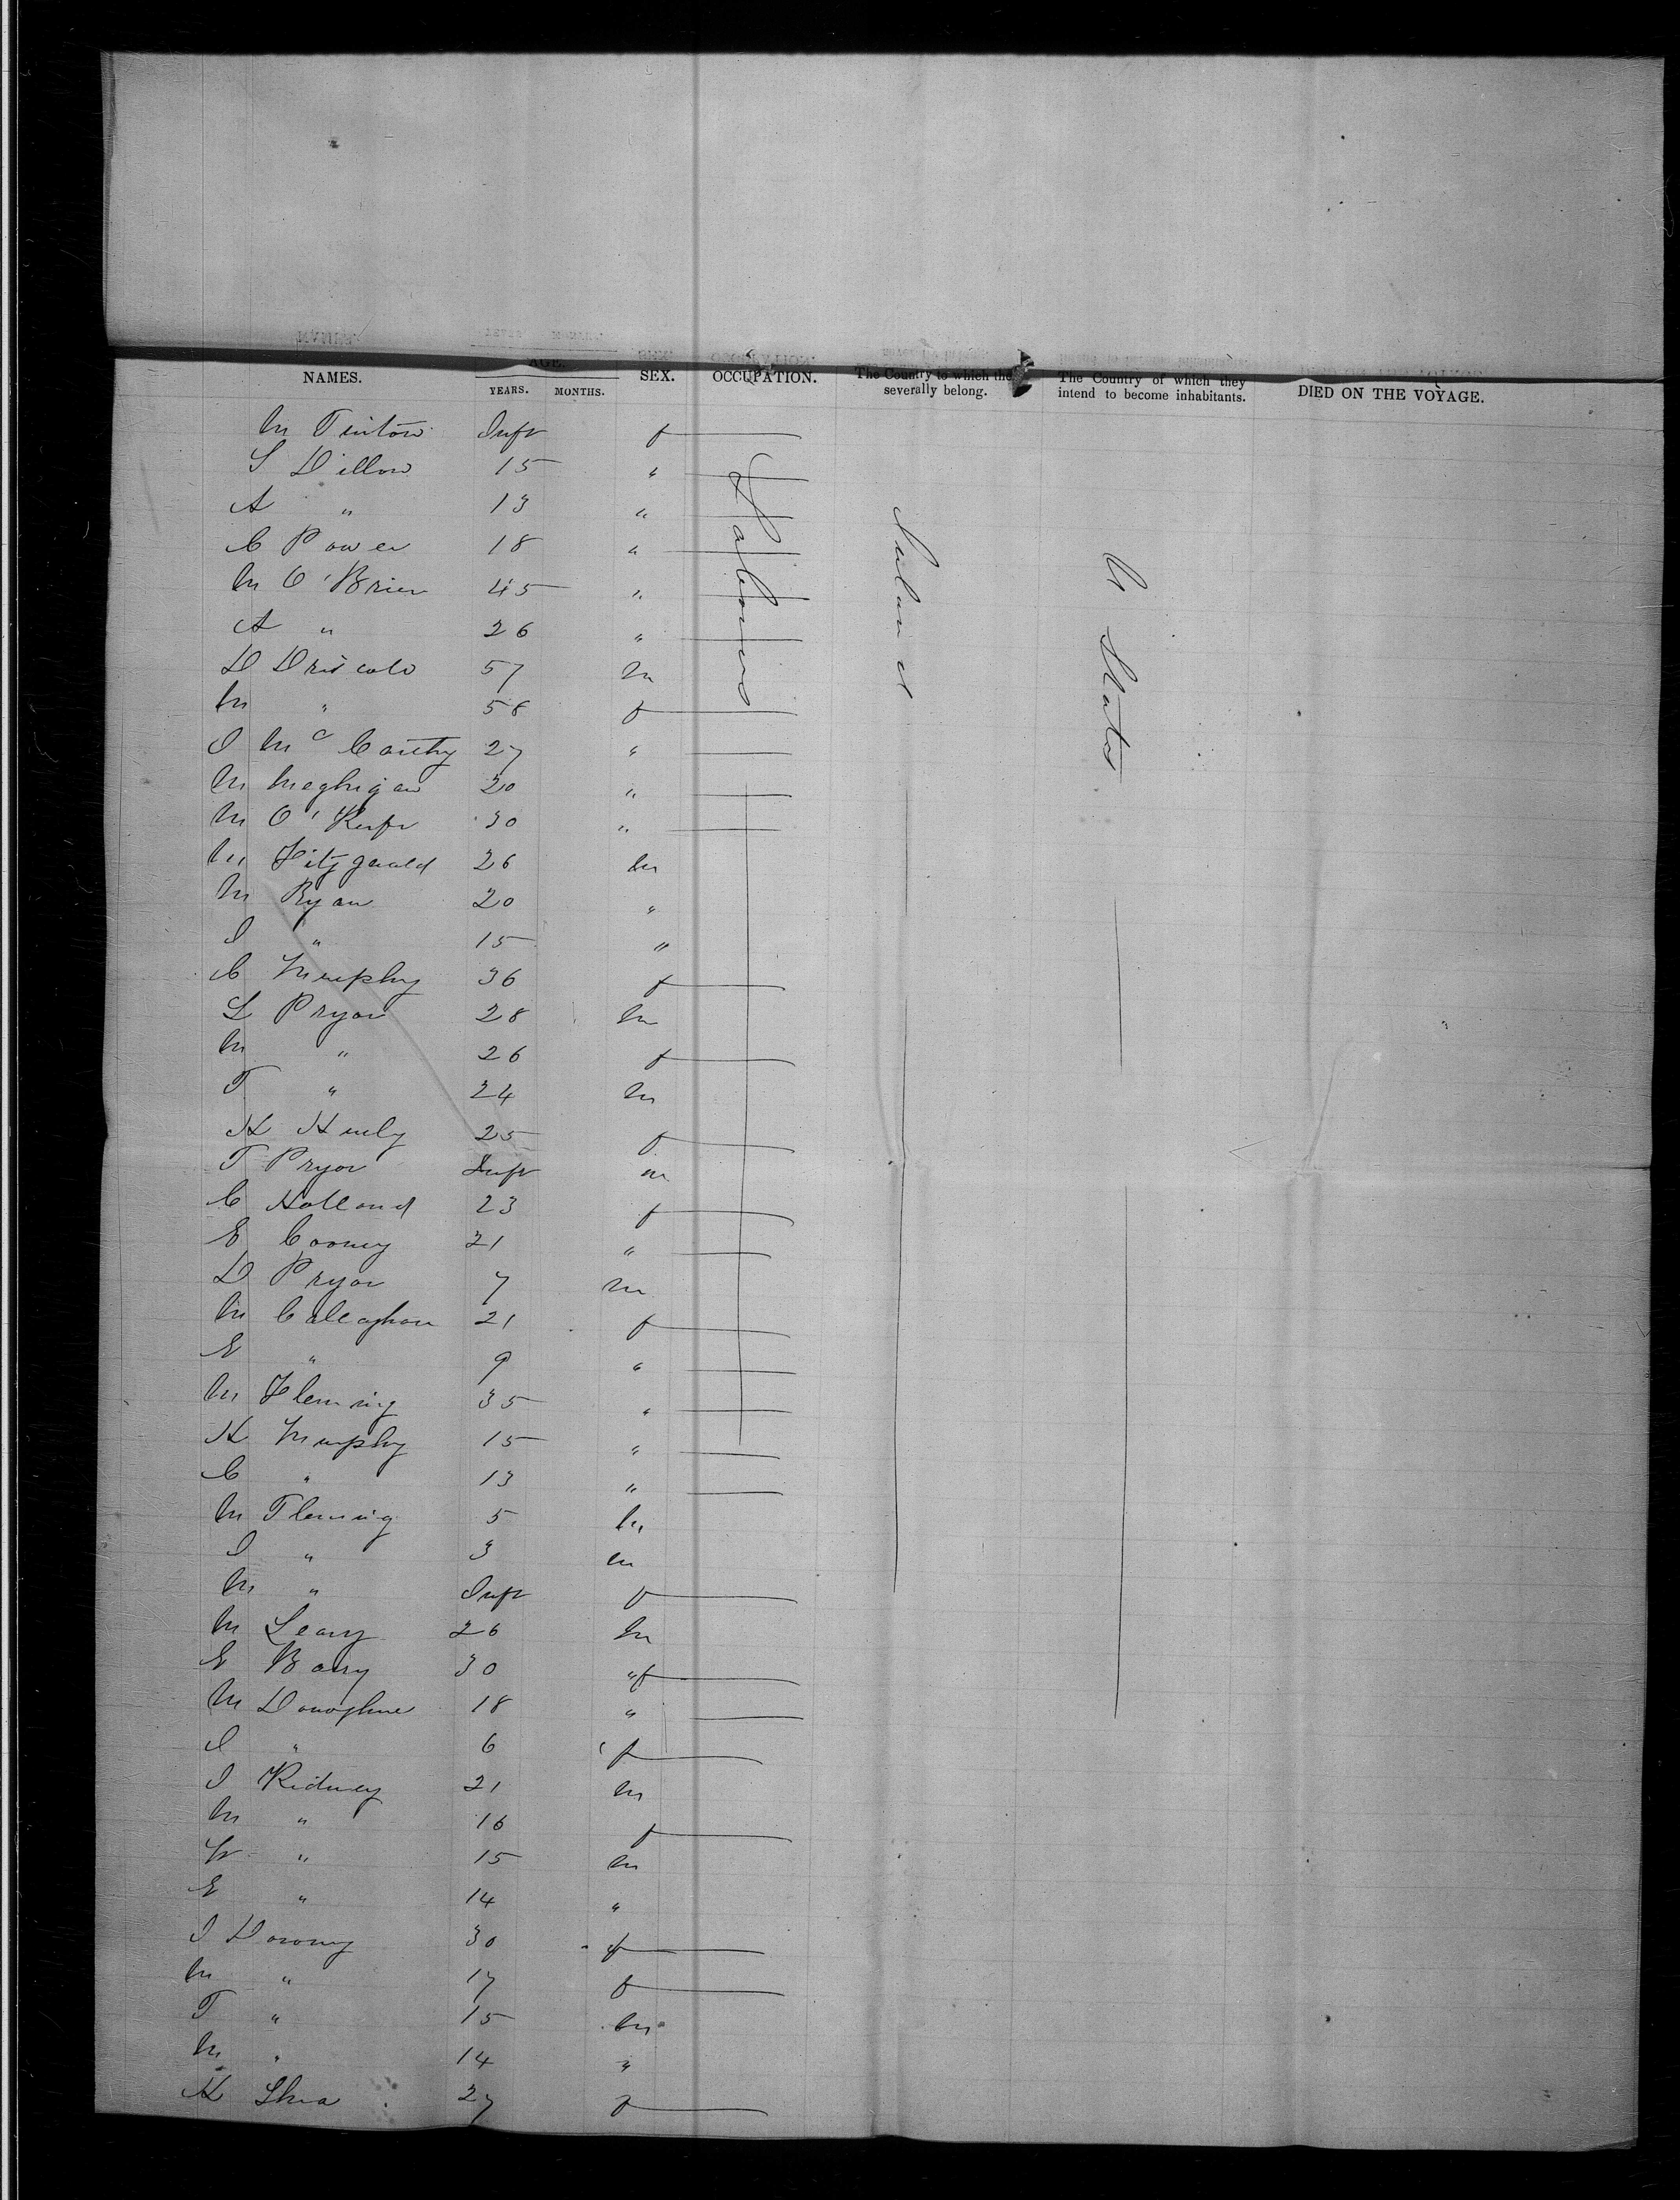 AGE.
NAMES. YEARS. MONTHS. SEX. OCCUPATION. The Country to which they severally belong. The Country of which they intend to become inhabitants. DIED ON THE VOYAGE.
Labourers
Ireland
U States
M Tinton Inft f
S Dillon 15 "
A " 13 "
C Power 18 "
M O'Brien 45 "
A " 26 "
D Driscoll 57 M
M " 58 f
J McCarthy 27 "
M Meghigan 20 "
M O'Keefe 30 "
M Fitzgerald 26 M
M Ryan 20 "
J " 15 "
C Murphy 36 f
L Pryor 28 M
M " 26 f
T " 24 M
H Hurly 25 f
T Pryor Inft m
C Holland 23 f
E Cooney 21 "
D Pryor 7 M
M Callaghan 21 f
E " 9 "
M Fleming 35 "
K Murphy 15 "
C " 13 "
M Fleming 5 M
J " 3 M
M " Inft f
M Leary 26 M
E Barry 30 "f
M Donoghue 18 "
J " 6 f
J Kidney 21 M
M " 16 f
W " 15 M
E " 14 "
J Downy 30 f
M " 17 f
T " 15 M
M " 14 "
K Shea 27 f